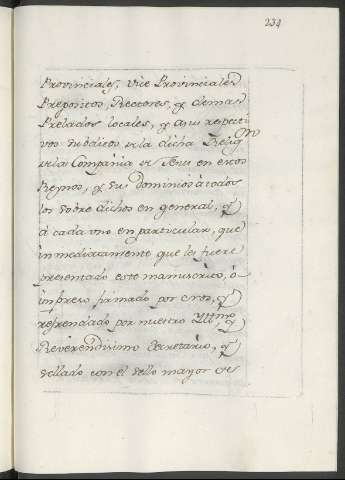 234
Provinciales, Vice Provinciales
Prepositos, Rectores, y demas
Prelados locales, y a sus respecti
vos subditos de la dicha Relig.on
de la Compañia de Jesus en estos
Reynos, y sus dominios a todos
los sobre dichos en general, y
á cada uno en particular, que
inmediatamente que les fuere
presentado este manuscrito, ó
impreso firmado por nos, y
refrendado por nuestro Yltmo, y
Reverendisimo Secretario, y
sellado con el sello mayor de